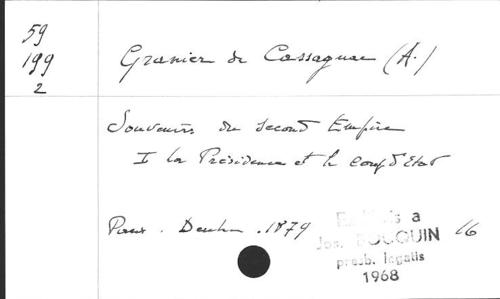 59
199
2
Granier de Cassagnac (A.)
Souvenirs du second Empire
I la Présidence et le coup d'Etat
Paris. Dentu. 1879 16
Ex libris a
Jos. BOCQUIN
presb. legatis
1968